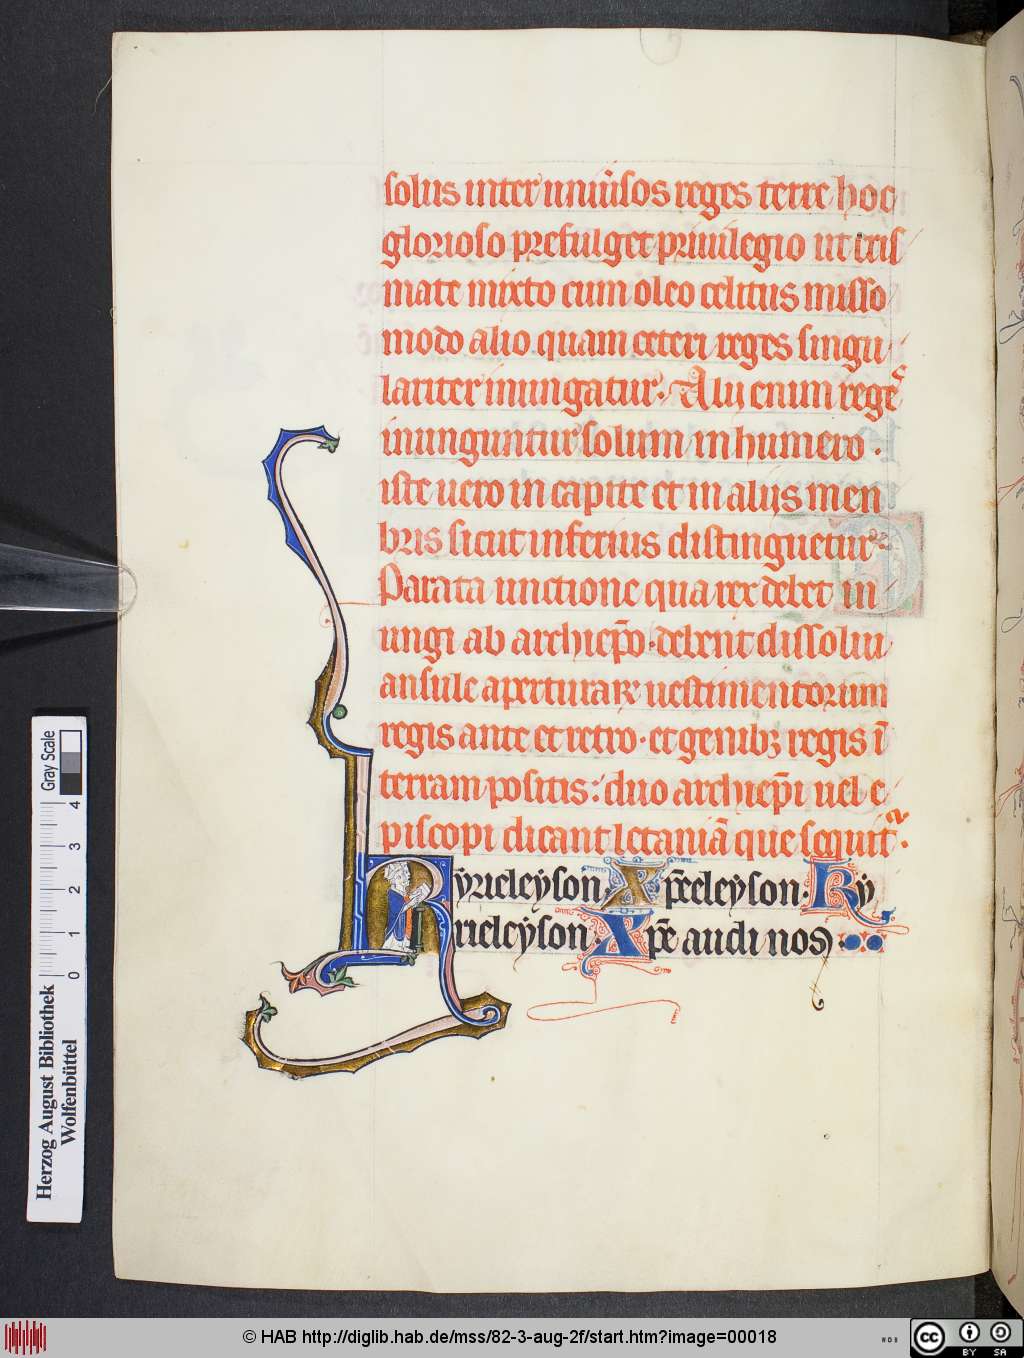 solus inter uniu̅sos reges terre hoc
glorioso prefulget priuilegio ut cris
mate mixto cum oleo celitus misso
modo alio quam ceteri reges singu
lariter inungatur. Alij enim reges
inunguntur solum in humero.
iste uero in capite et in alijs men
bris sicut inferius distinguetur.
Parata unctione qua rex debet in
ungi ab archiep̅o. debent dissolui
ansule aperturaꝝ uestimentorum
regis ante et retro. et genibꝫ regis i̅
terram positis: duo archiep̅i uel e
piscopi dicant letania̅ que sequit᷑.
Kyrieleyson. Xp̅eeleyson. Ky
rieleyson. Xp̅e audi nos
Gray Scale
0 1 2 3 4
Herzog August Bibliothek
Wolfenbüttel
© HAB http://diglib.hab.de/mss/82-3-aug-2f/start.htm?image=00018
cc BY SA